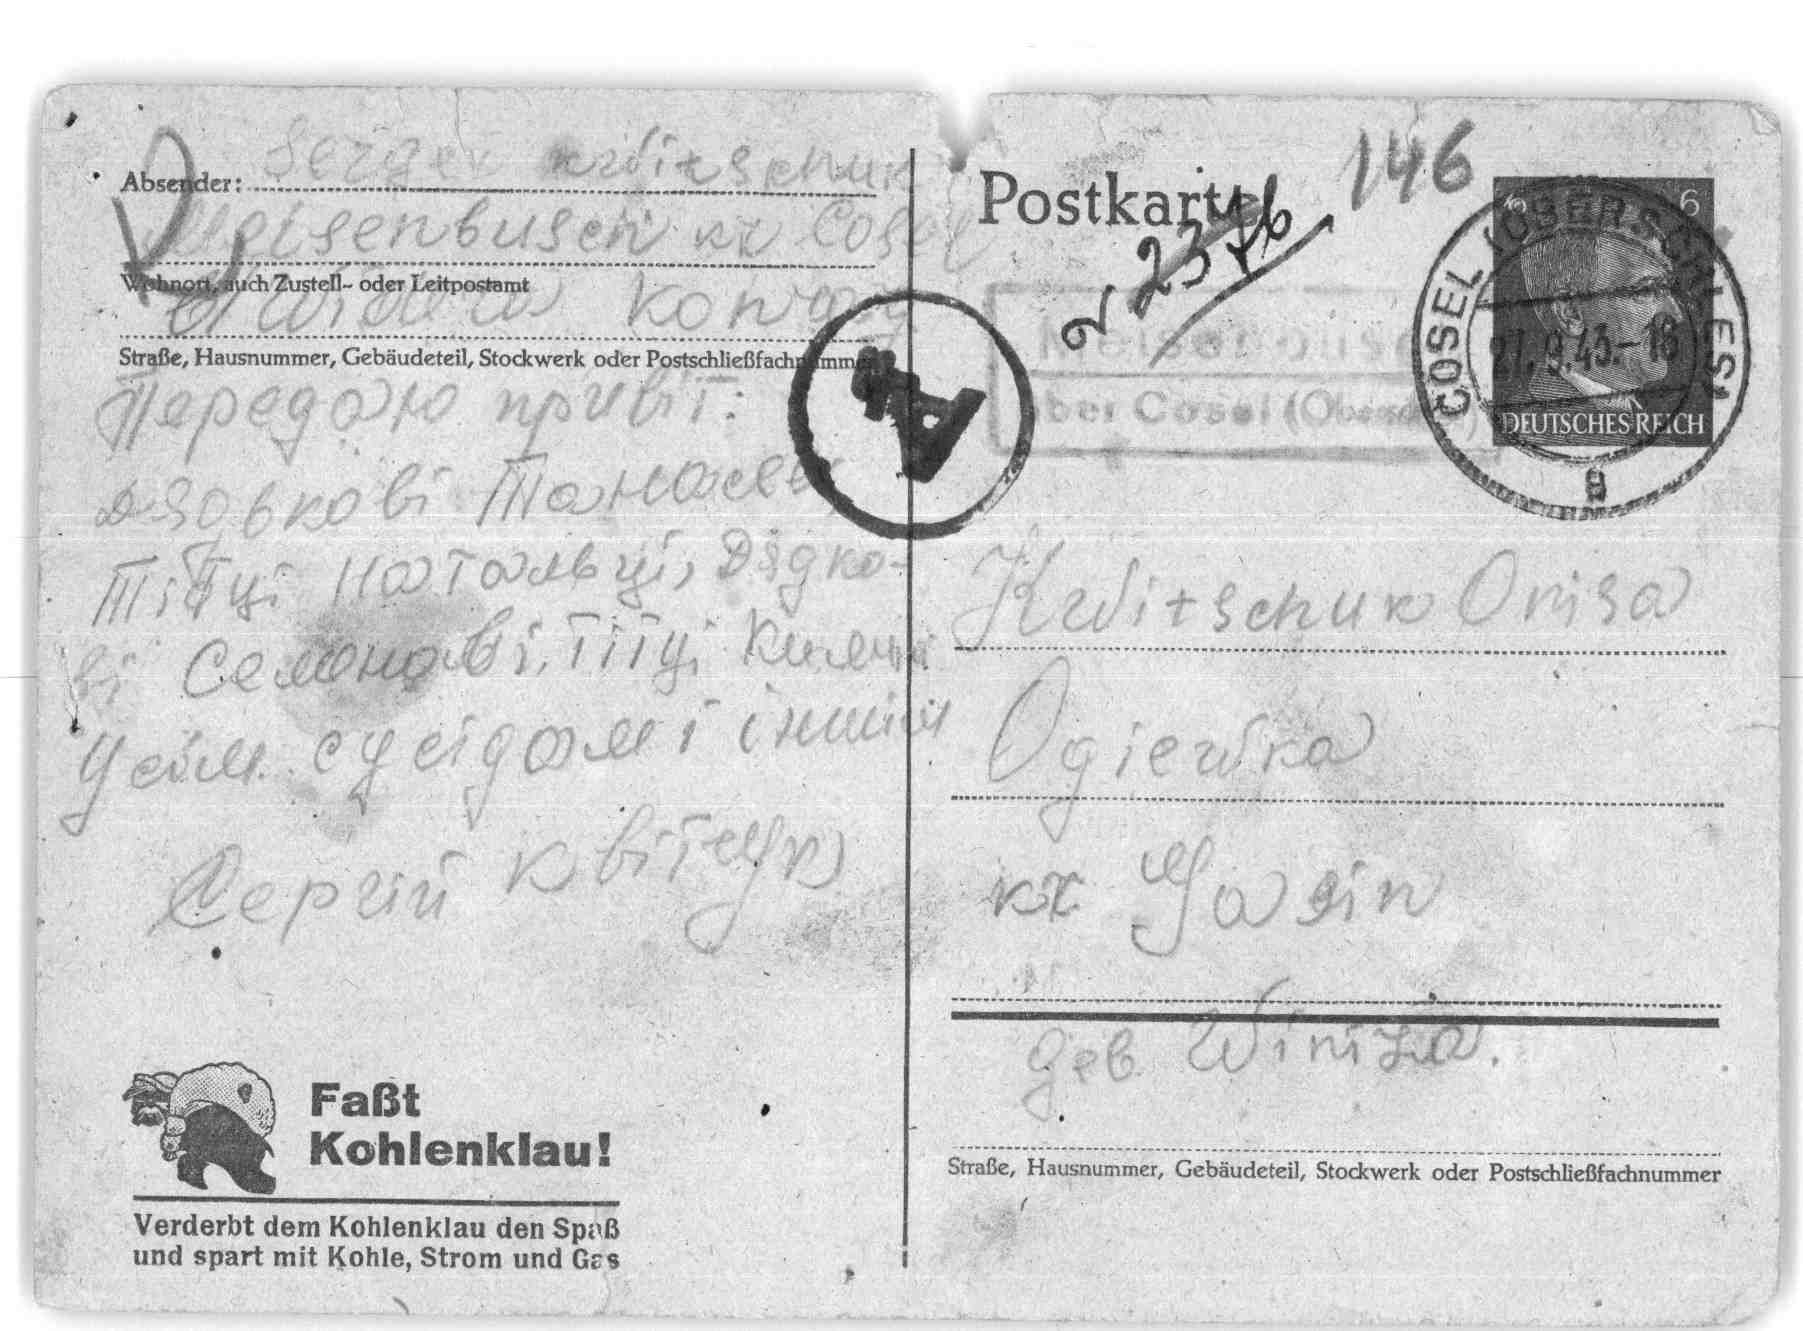 Absender: Sergei Kwitschuk
Meisenbusch kr Cosel
Wohnort, auch Zustell- oder Leitpostamt
Straße, Hausnummer, Gebäudeteil, Stockwerk oder Postschließfachnummer
Передаю привіт:
дядькові Танасеві
тітці Натальці, Дядко-
ві Семенові, тітці
Усім сусідам і іншим
Сергій Квітчук
Faßt
Kohlenklau!
Verderbt dem Kohlenklau den Spaß
und spart mit Kohle, Strom und Gas
A
Postkarte
146
6
COSEL (OBERSCHLES)
27.9.43.-16
DEUTSCHES REICH
a
Meisenbusch
über Cosel (Obersch
Kwitschuk Onisa
Ogiewka
kr
geb Winiza.
Straße, Hausnummer, Gebäudeteil, Stockwerk oder Postschließfachnummer